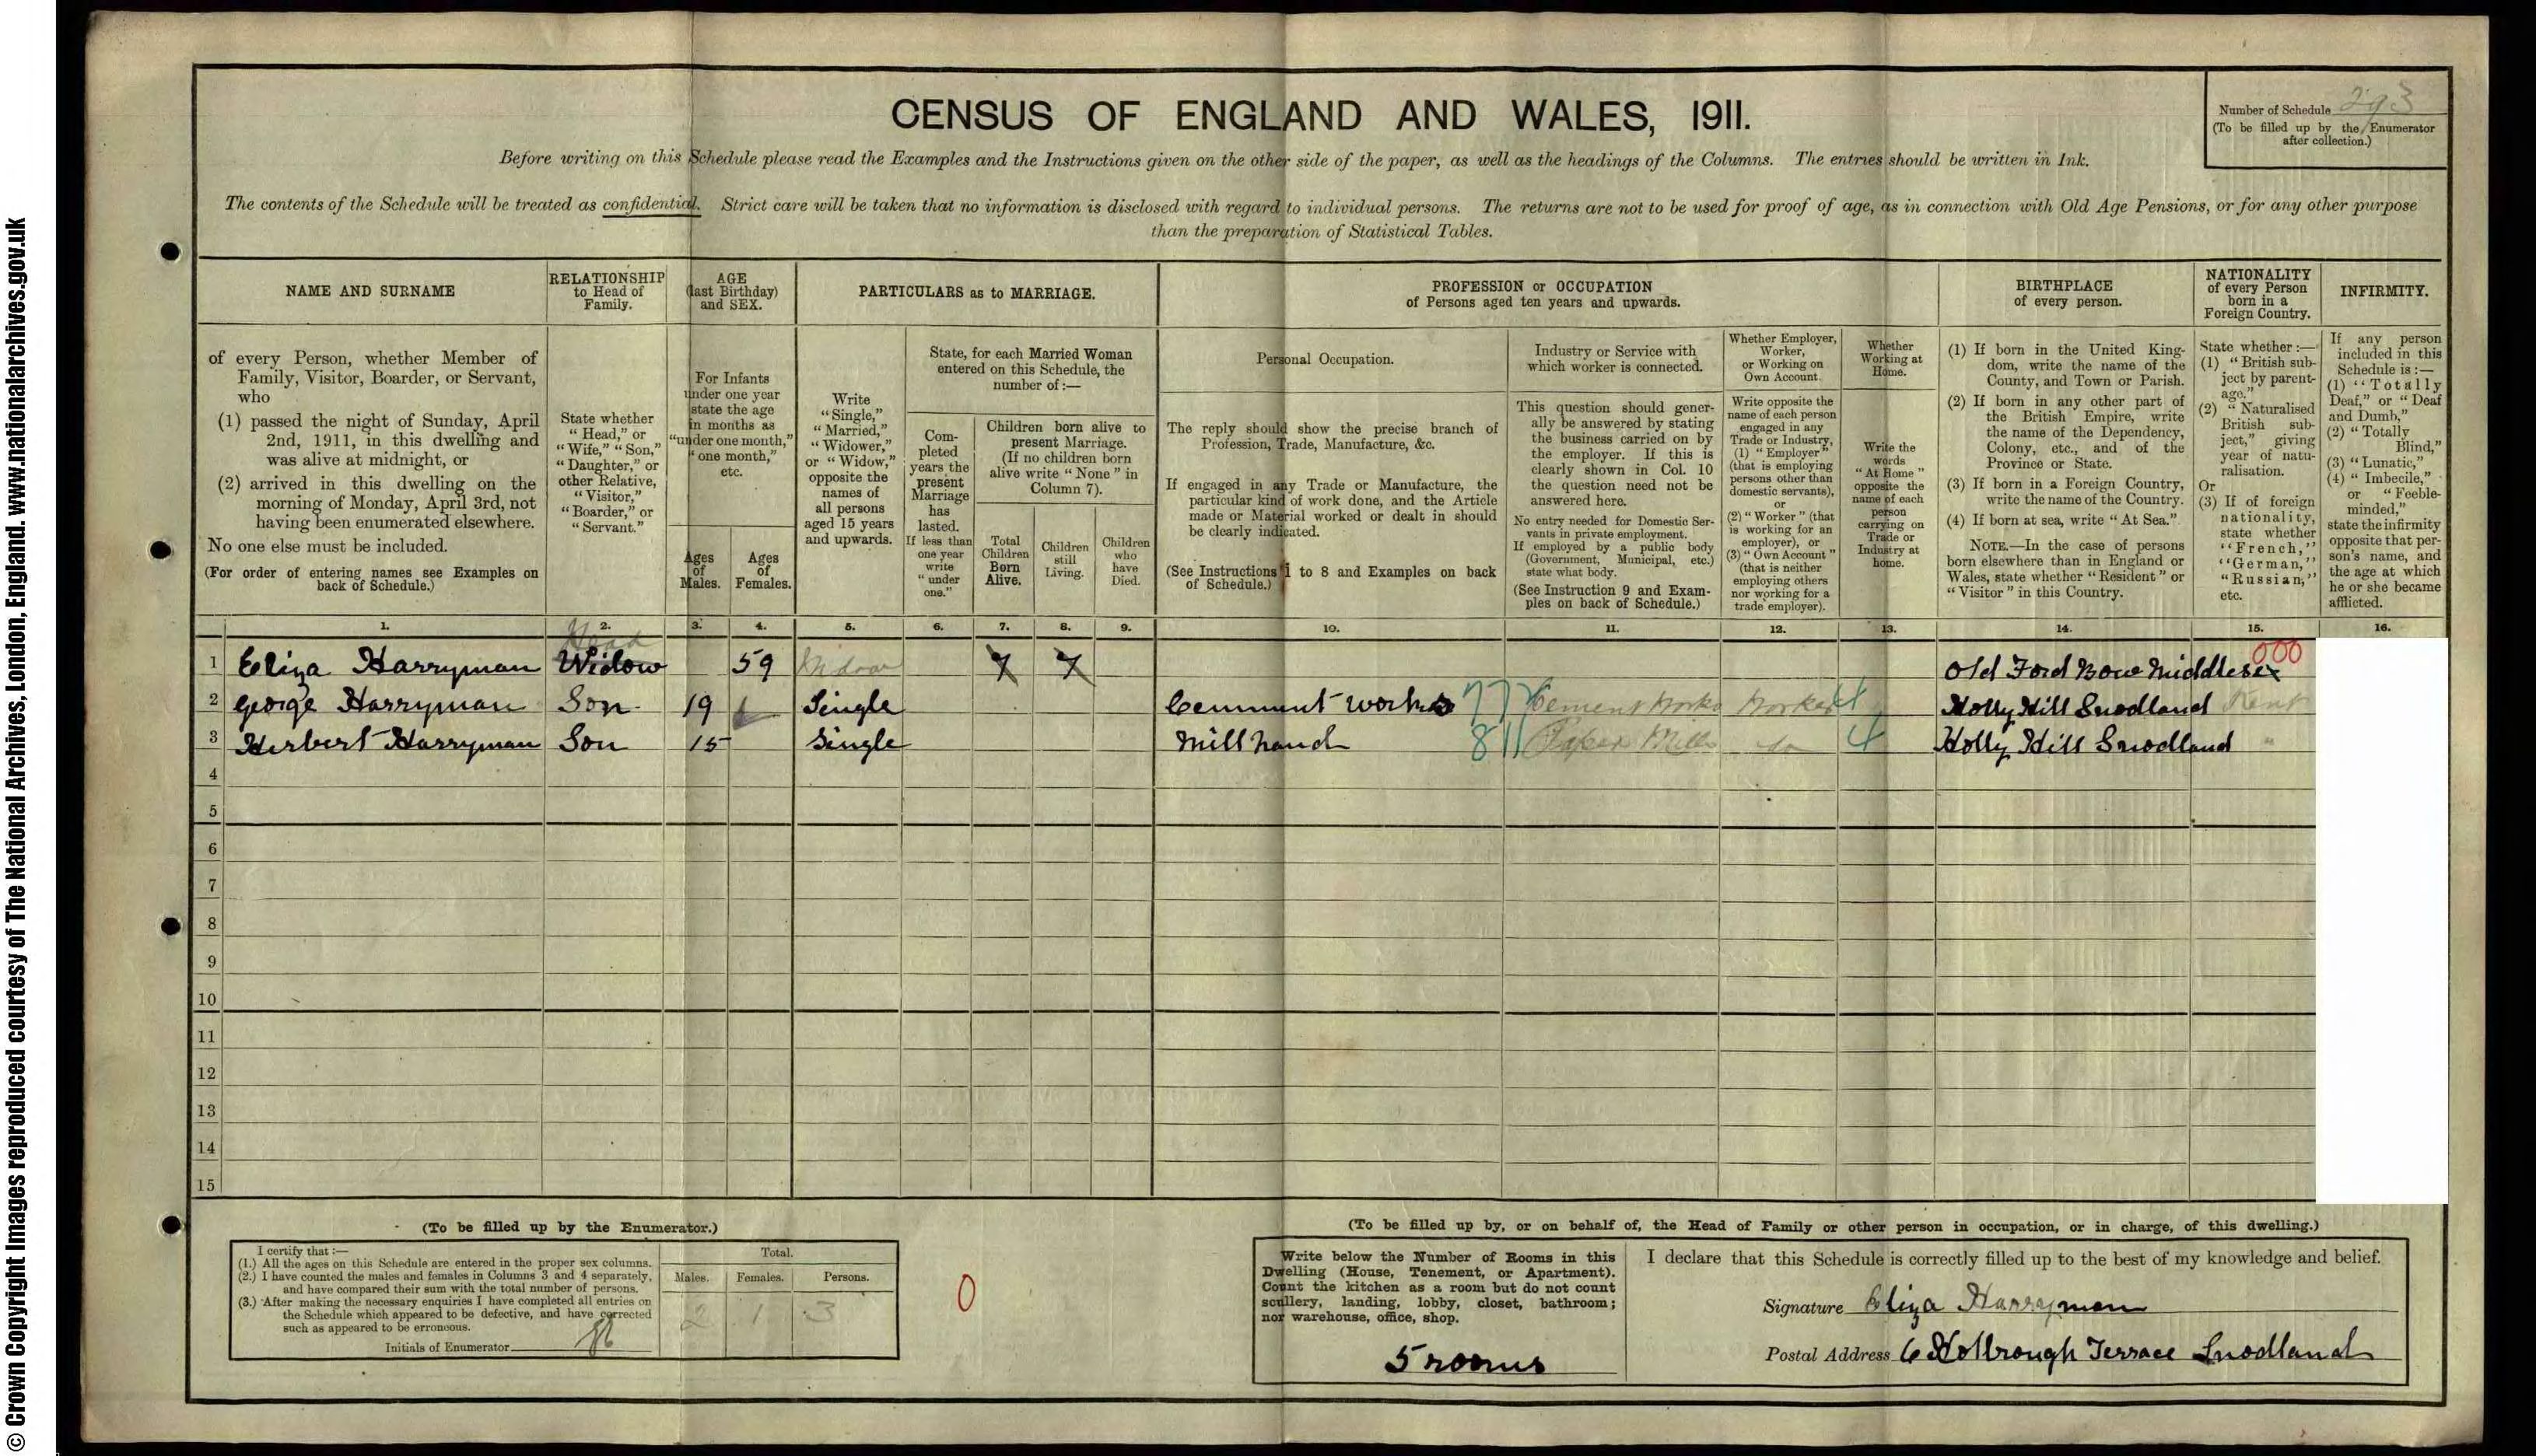 © Crown Copyright Images reproduced courtesy of The National Archives, London, England. www.nationalarchives.gov.uk
CENSUS OF ENGLAND AND WALES, 1911.
Number of Schedule 293
(To be filled up by the Enumerator
after collection.)
Before writing on this Schedule please read the Examples and the Instructions given on the other side of the paper, as well as the headings of the Columns. The entries should be written in Ink.
The contents of the Schedule will be treated as confidential. Strict care will be taken that no information is disclosed with regard to individual persons. The returns are not to be used for proof of age, as in connection with Old Age Pensions, or for any other purpose
than the preparation of Statistical Tables.
NAME AND SURNAME
of every Person, whether Member of
Family, Visitor, Boarder, or Servant,
who
(1) passed the night of Sunday, April
2nd, 1911, in this dwelling and
was alive at midnight, or
(2) arrived in this dwelling on the
morning of Monday, April 3rd, not
having been enumerated elsewhere.
No one else must be included.
(For order of entering names see Examples on
back of Schedule.)
RELATIONSHIP
to Head of
Family.
State whether
"Head," or
"Wife," "Son,"
"Daughter," or
other Relative,
"Visitor,"
"Boarder," or
"Servant."
AGE
(last Birthday)
and SEX.
For Infants
under one year
state the age
in months as
"under one month,"
"one month,"
etc.
Ages
of
Males.
Ages
of
Females.
PARTICULARS as to MARRIAGE.
Write
"Single,"
"Married,"
"Widower,"
or "Widow,"
opposite the
names of
all persons
aged 15 years
and upwards.
State, for each Married Woman
entered on this Schedule, the
number of:—
Com-
pleted
years the
present
Marriage
has
lasted.
If less than
one year
write
"under
one."
Children born alive to
present Marriage.
(If no children born
alive write "None" in
Column 7).
Total
Children
Born
Alive.
Children
still
Living.
Children
who
have
Died.
PROFESSION or OCCUPATION
of Persons aged ten years and upwards.
Personal Occupation.
The reply should show the precise branch of
Profession, Trade, Manufacture, &c.
If engaged in any Trade or Manufacture, the
particular kind of work done, and the Article
made or Material worked or dealt in should
be clearly indicated.
(See Instructions 1 to 8 and Examples on back
of Schedule.)
Industry or Service with
which worker is connected.
This question should gener-
ally be answered by stating
the business carried on by
the employer. If this is
clearly shown in Col. 10
the question need not be
answered here.
No entry needed for Domestic Ser-
vants in private employment.
If employed by a public body
(Government, Municipal, etc.)
state what body.
(See Instruction 9 and Exam-
ples on back of Schedule.)
Whether Employer,
Worker,
or Working on
Own Account.
Write opposite the
name of each person
engaged in any
Trade or Industry,
(1) "Employer"
(that is employing
persons other than
domestic servants),
or
(2) "Worker" (that
is working for an
employer), or
(3) "Own Account"
(that is neither
employing others
nor working for a
trade employer).
Whether
Working at
Home.
Write the
words
"At Home"
opposite the
name of each
person
carrying on
Trade or
Industry at
home.
BIRTHPLACE
of every person.
(1) If born in the United King-
dom, write the name of the
County, and Town or Parish.
(2) If born in any other part of
the British Empire, write
the name of the Dependency,
Colony, etc., and of the
Province or State.
(3) If born in a Foreign Country,
write the name of the Country.
(4) If born at sea, write "At Sea."
NOTE.—In the case of persons
born elsewhere than in England or
Wales, state whether "Resident" or
"Visitor" in this Country.
NATIONALITY
of every Person
born in a
Foreign Country.
State whether:—
(1) "British sub-
ject by parent-
age."
(2) "Naturalised
British sub-
ject," giving
year of natu-
ralisation.
Or
(3) If of foreign
nationality,
state whether
"French,"
"German,"
"Russian,"
etc.
INFIRMITY.
If any person
included in this
Schedule is:—
(1) "Totally
Deaf," or "Deaf
and Dumb,"
(2) "Totally
Blind,"
(3) "Lunatic,"
(4) "Imbecile,"
or "Feeble-
minded,"
state the infirmity
opposite that per-
son's name, and
the age at which
he or she became
afflicted.
1. 2. 3. 4. 5. 6. 7. 8. 9. 10. 11. 12. 13. 14. 15. 16.
Head
000
1 Eliza Harryman Widow 59 Widow 7 7 Old Ford Bow Middlesex
2 George Harryman Son 19 Single Cemmunt works 777 Cement Works Worker 4 Holly Hill Snodland Kent
3 Herbert Harryman Son 15 Single Mill hand 811 Paper Mills do 4 Holly Hill Snodland "
4
5
6
7
8
9
10
11
12
13
14
15
(To be filled up by the Enumerator.)
I certify that:—
(1.) All the ages on this Schedule are entered in the proper sex columns.
(2.) I have counted the males and females in Columns 3 and 4 separately,
and have compared their sum with the total number of persons.
(3.) After making the necessary enquiries I have completed all entries on
the Schedule which appeared to be defective, and have corrected
such as appeared to be erroneous.
Initials of Enumerator
Total.
Males. Females. Persons.
2 1 3
0
(To be filled up by, or on behalf of, the Head of Family or other person in occupation, or in charge, of this dwelling.)
Write below the Number of Rooms in this
Dwelling (House, Tenement, or Apartment).
Count the kitchen as a room but do not count
scullery, landing, lobby, closet, bathroom;
nor warehouse, office, shop.
5 rooms
I declare that this Schedule is correctly filled up to the best of my knowledge and belief.
Signature Eliza Harryman
Postal Address 6 Holbrough Terrace Snodland